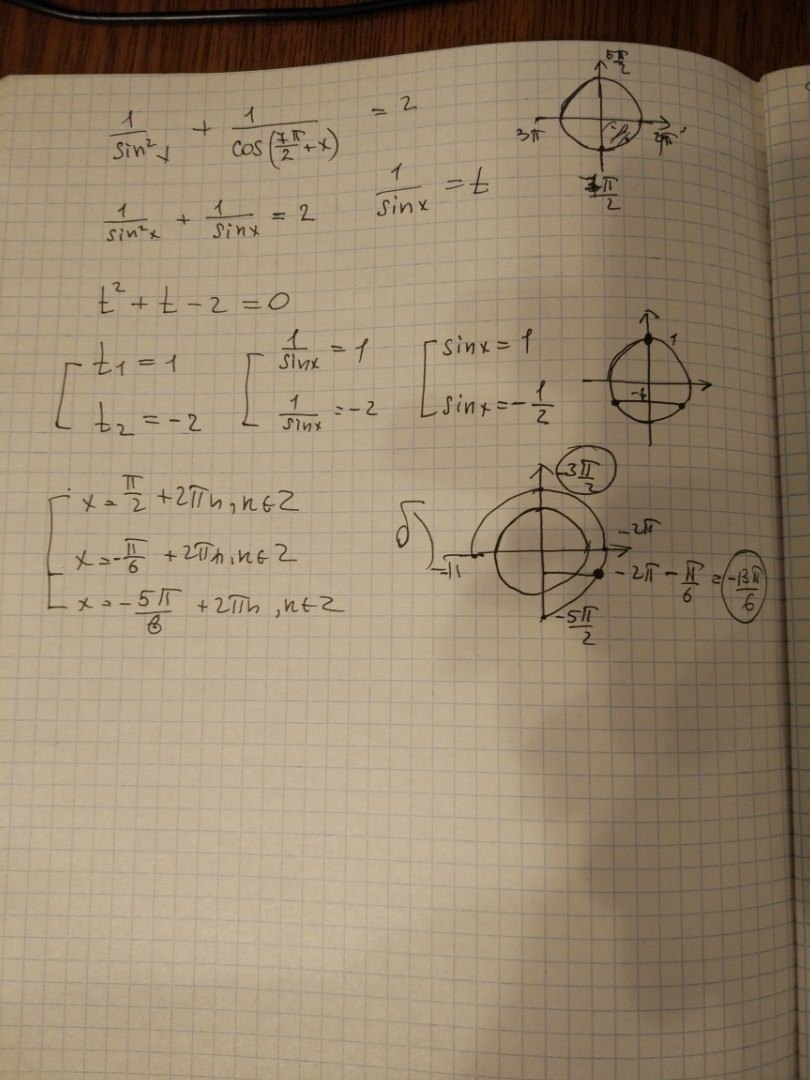 1/sin²x + 1/cos(7π/2 + x) = 2
5π/2
3π
4π
7π/2
1/sin²x + 1/sinx = 2
1/sinx = t
t² + t - 2 = 0
t₁ = 1
t₂ = -2
1/sinx = 1
1/sinx = -2
sinx = 1
sinx = -1/2
1
x = π/2 + 2πn, n∈Z
x = -π/6 + 2πn, n∈Z
x = -5π/6 + 2πn, n∈Z
б)
-3π/2
-2π
-π
-2π - π/6 = -13π/6
-5π/2